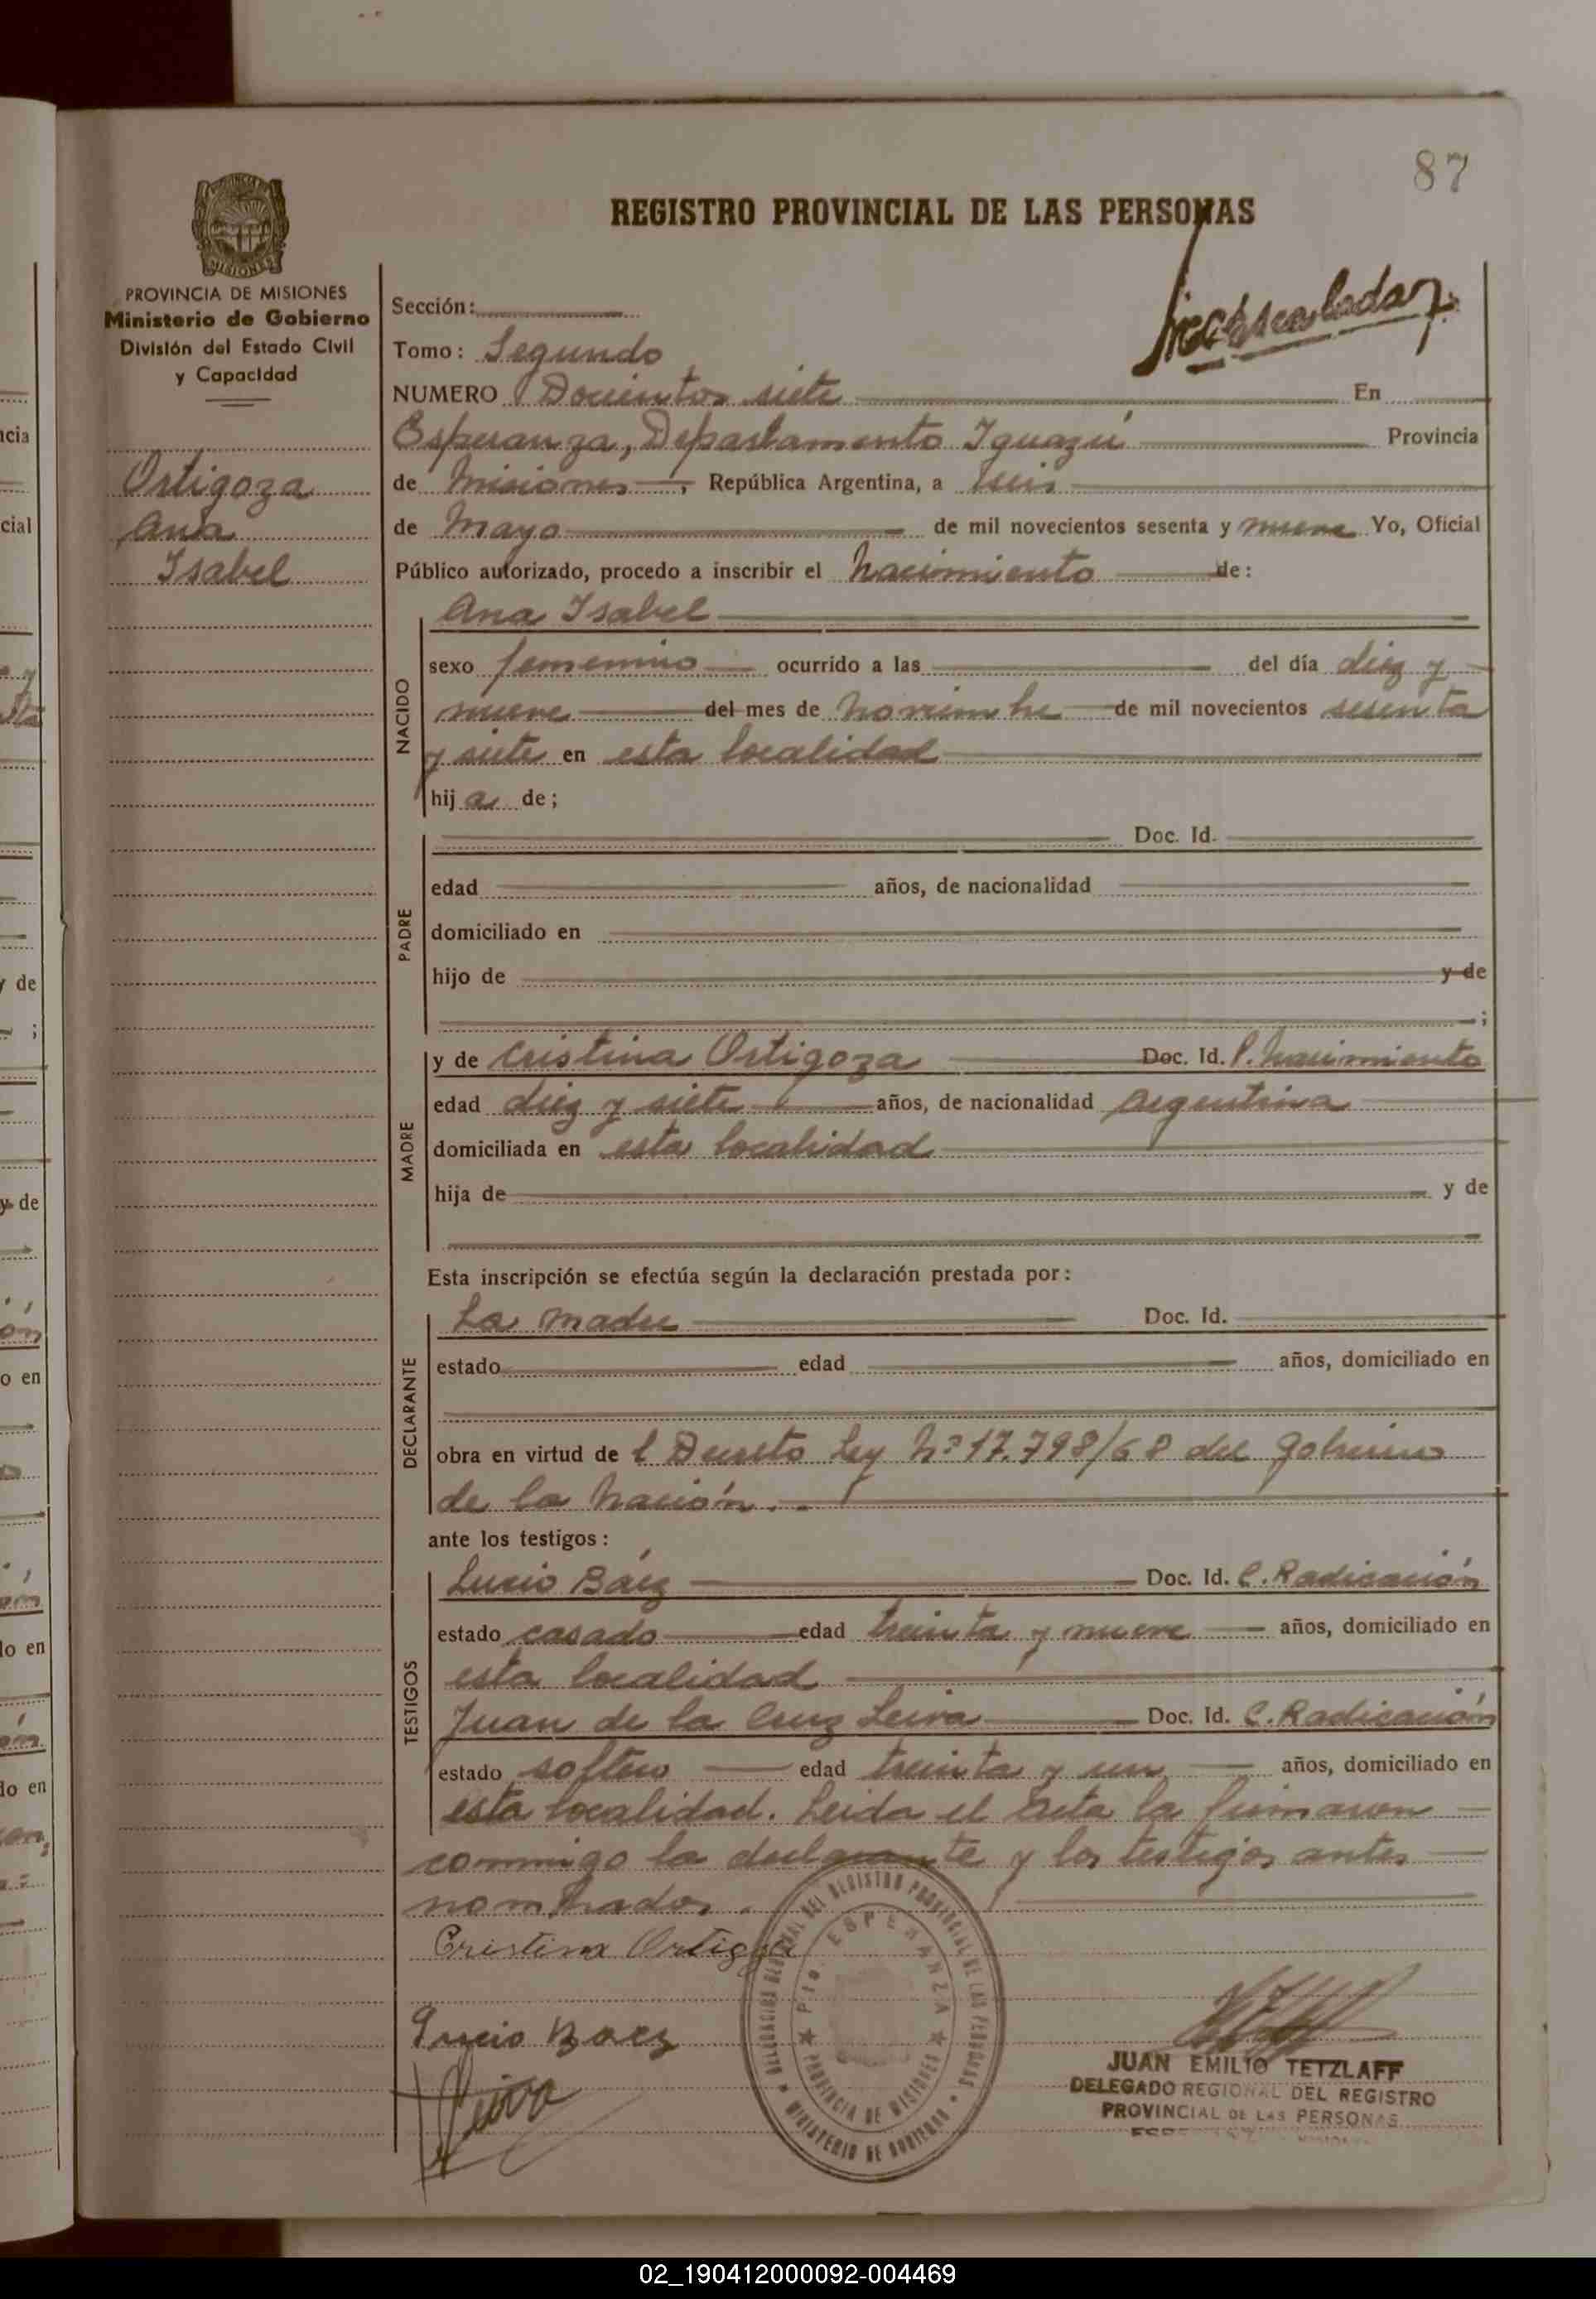 87
REGISTRO PROVINCIAL DE LAS PERSONAS
MISIONES
PROVINCIA DE MISIONES
Ministerio de Gobierno
División del Estado Civil
y Capacidad
Ortigoza
Ana
Isabel
Sección:
Tomo: Segundo
NUMERO Docientos siete En
Esperanza, Departamento Iguazú Provincia
de Misiones, República Argentina, a seis
de Mayo de mil novecientos sesenta y nueve Yo, Oficial
Público autorizado, procedo a inscribir el Nacimiento de:
Ana Isabel
NACIDO
sexo femenino ocurrido a las del día diez y
nueve del mes de Noviembre de mil novecientos sesenta
y siete en esta localidad
hija de;
PADRE
Doc. Id.
edad años, de nacionalidad
domiciliado en
hijo de y de
;
MADRE
y de Cristina Ortigoza Doc. Id. P. Nacimiento
edad diez y siete años, de nacionalidad Argentina
domiciliada en esta localidad
hija de y de
Esta inscripción se efectúa según la declaración prestada por:
DECLARANTE
La madre Doc. Id.
estado edad años, domiciliado en
obra en virtud de l Decreto Ley Nº 17.798/68 del Gobierno
de la Nación.
ante los testigos:
TESTIGOS
Lucio Báez Doc. Id. C. Radicación
estado casado edad treinta y nueve años, domiciliado en
esta localidad
Juan de la Cruz Leiva Doc. Id. C. Radicación
estado soltero edad treinta y un años, domiciliado en
esta localidad. Leida el Acta la firmaron
conmigo la declarante y los testigos antes
nombrados.
Cristina Ortigoza
Lucio Baez
Leiva
DELEGACION REGIONAL DEL REGISTRO PROVINCIAL DE LAS PERSONAS
MINISTERIO DE GOBIERNO
Pto. ESPERANZA
PROVINCIA DE MISIONES
JUAN EMILIO TETZLAFF
DELEGADO REGIONAL DEL REGISTRO
PROVINCIAL DE LAS PERSONAS
02_190412000092-004469